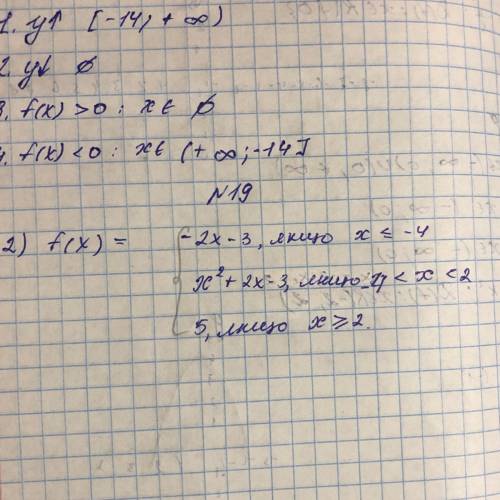 1. y↑ [-14; +∞)
2. y↓ ∅
3. f(x) > 0 : x ∈ ∅
4. f(x) < 0 : x ∈ (+∞; -14]
№19
2) f(x) =
-2x-3, якщо x ≤ -4
x²+2x-3, якщо -4 < x < 2
5, якщо x ≥ 2.